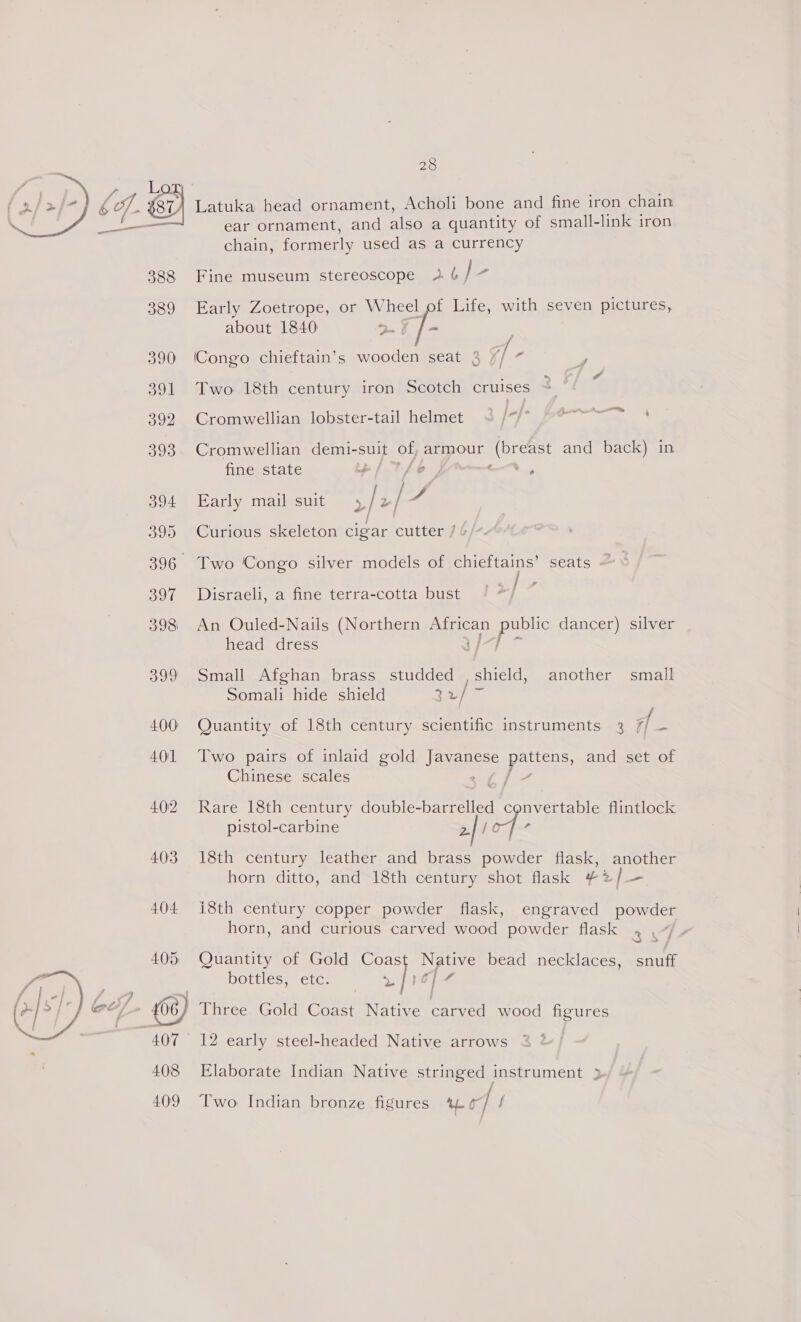 28
Lot
2/2/- 60/- 387 Latuka head ornament, Acholi bone and fine iron chain
ear ornament, and also a quantity of small-link iron
chain, formerly used as a currency
388 Fine museum stereoscope 26/-
389 Early Zoetrope, or Wheel of Life, with seven pictures,
about 1840
390 Congo chieftain's wooden seat
391 Two 18th century iron Scotch cruises
392 Cromwellian lobster-tail helmet
393 Cromwellian demi-suit of armour (breast and back) in
fine state
394 Early mail suit
395 Curious skeleton cigar cutter
396 Two Congo silver models of chieftains' seats
397 Disraeli, a fine terra-cotta bust
398 An Ouled-Nails (Northern African public dancer) silver
head dress
399 Small Afghan brass studded shield, another small
Somali hide shield 32/-
400 Quantity of 18th century scientific instruments
401 Two pairs of inlaid gold Javanese pattens, and set of
Chinese scales
402 Rare 18th century double-barrelled convertable flintlock
pistol-carbine
403 18th century leather and brass powder flask, another
horn ditto, and 18th century shot flask 42/-
404 18th century copper powder flask, engraved powder
horn, and curious carved wood powder flask
405 Quantity of Gold Coast Native bead necklaces, snuff
bottles, etc.
2/5/- 60/- 406 Three Gold Coast Native carved wood figures
407 12 early steel-headed Native arrows
408 Elaborate Indian Native stringed instrument
409 Two Indian bronze figures